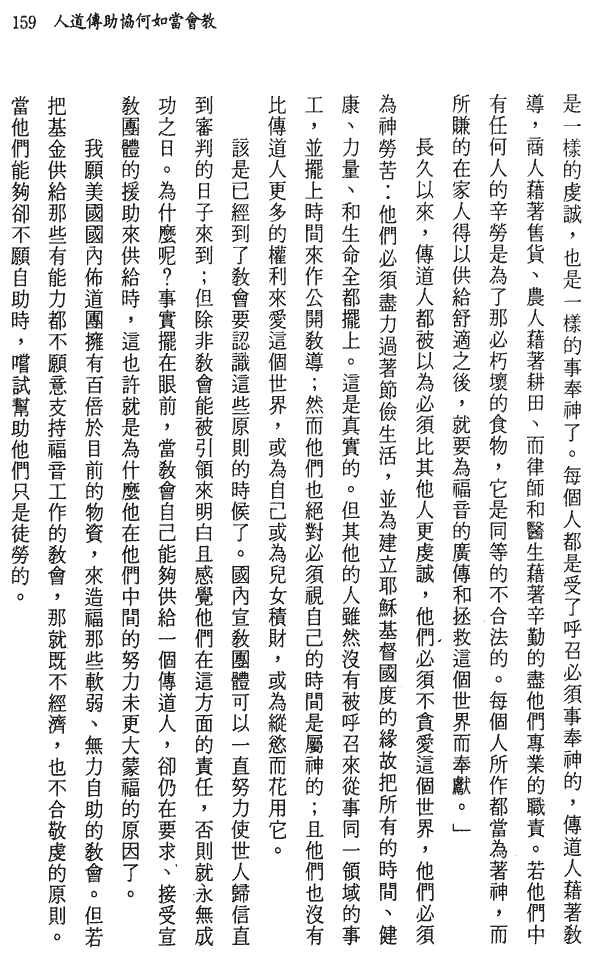 159 人道傳助協何如當會教
是一樣的虔誠，也是一樣的事奉神了。每個人都是受了呼召必須事奉神的，傳道人藉著教
導，商人藉著售貨、農人藉著耕田、而律師和醫生藉著辛勤的盡他們專業的職責。若他們中
有任何人的辛勞是為了那必朽壞的食物，它是同等的不合法的。每個人所作都當為著神，而
所賺的在家人得以供給舒適之後，就要為福音的廣傳和拯救這個世界而奉獻。」
長久以來，傳道人都被以為必須比其他人更虔誠，他們必須不貪愛這個世界，他們必須
為神勞苦：他們必須盡力過著節儉生活，並為建立耶穌基督國度的緣故把所有的時間、健
康、力量、和生命全都擺上。這是真實的。但其他的人雖然沒有被呼召來從事同一領域的事
工，並擺上時間來作公開教導；然而他們也絕對必須視自己的時間是屬神的；且他們也沒有
比傳道人更多的權利來愛這個世界，或為自己或為兒女積財，或為縱慾而花用它。
該是已經到了教會要認識這些原則的時候了。國內宣教團體可以一直努力使世人歸信直
到審判的日子來到；但除非教會能被引領來明白且感覺他們在這方面的責任，否則就永無成
功之日。為什麼呢？事實擺在眼前，當教會自己能夠供給一個傳道人，卻仍在要求、接受宣
教團體的援助來供給時，這也許就是為什麼他在他們中間的努力未更大蒙福的原因了。
我願美國國內佈道團擁有百倍於目前的物資，來造福那些軟弱、無力自助的教會。但若
把基金供給那些有能力都不願意支持福音工作的教會，那就既不經濟，也不合敬虔的原則。
當他們能夠卻不願自助時，嚐試幫助他們只是徒勞的。